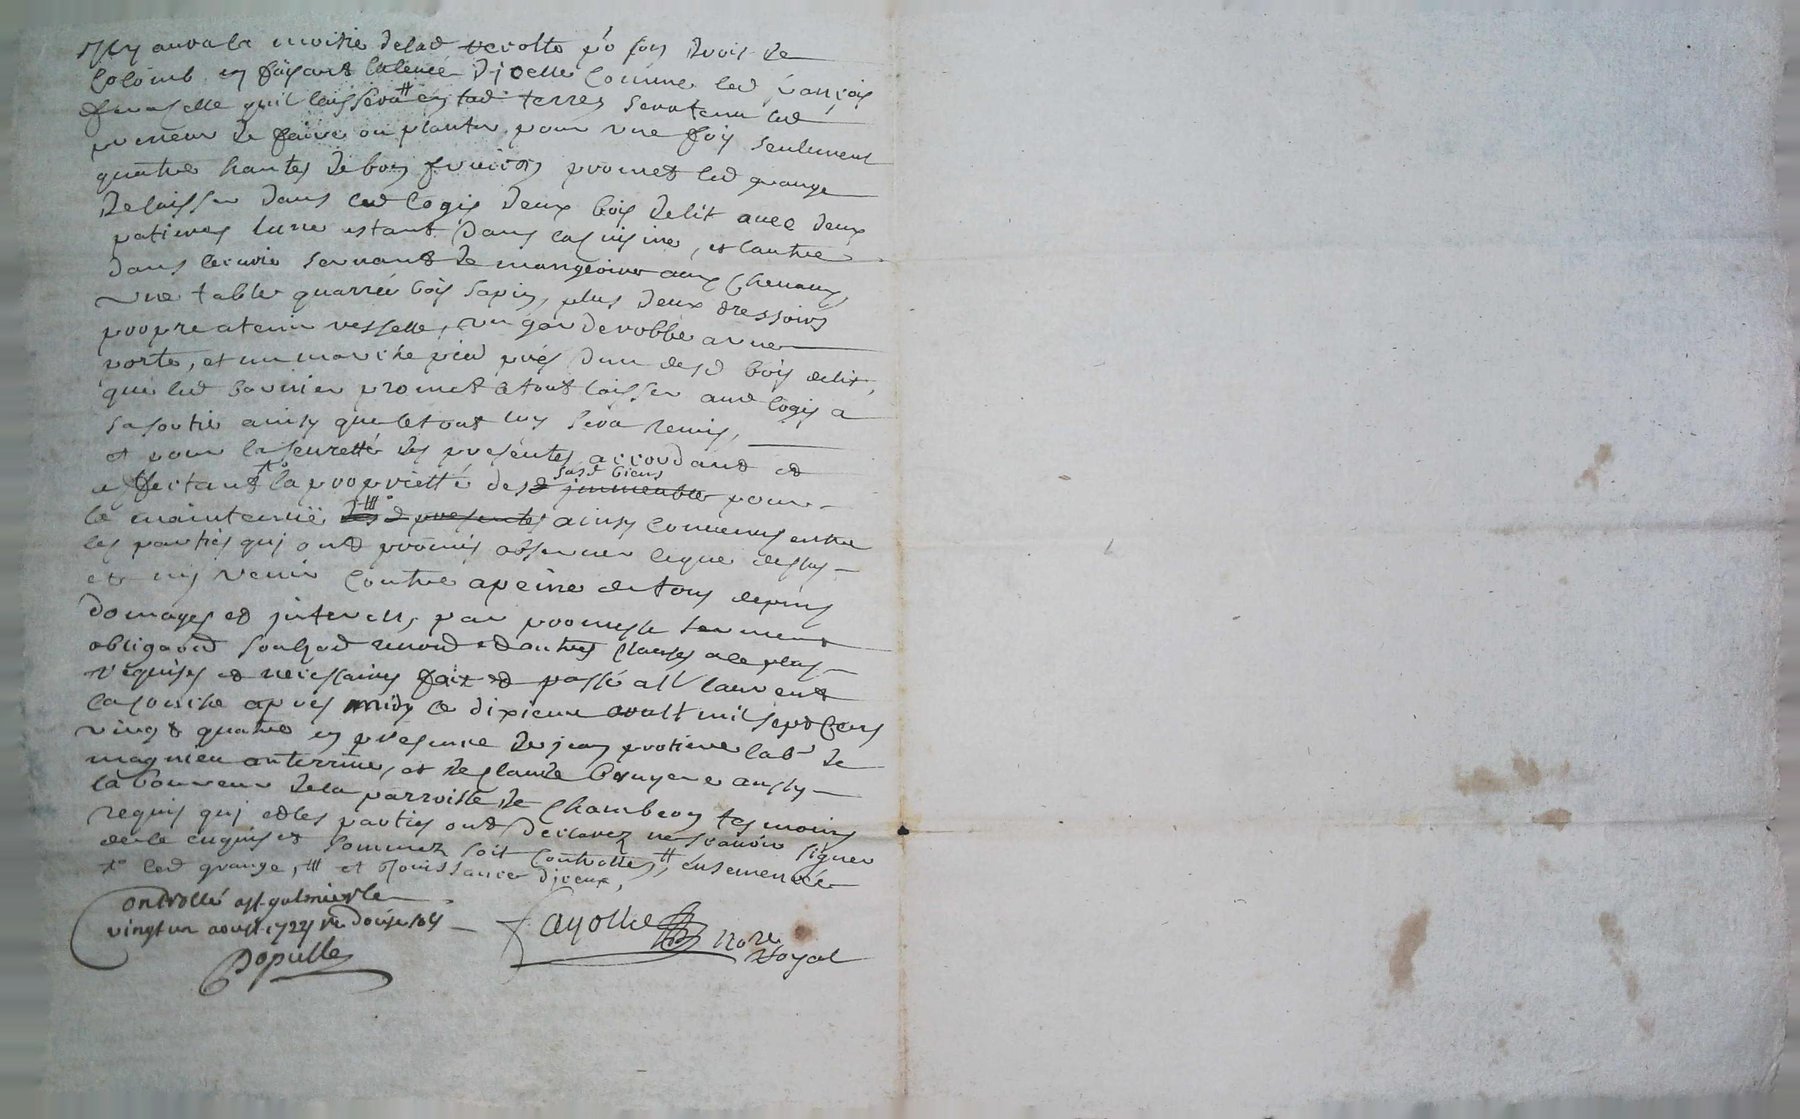 aura la moitié de lad recolte po son droit de
Colomb en faisant la levée d'icelle comme led françois
quil laissera en lad terres sera tenu led
preneur de faire ou planter pour une fois seulement
quatre hantes de bon promet led grange
delaisser dans led logis deux bois de lit avec deux
patieres lune estant dans la cuisine, et lautre
dans lecurie servant de mangeoire aux chevaux,
une table quarrée bois sapin, plus deux dressoirs
propre a tenir vesselle, un garderobbe a une
porte, et un marche pied près d'un desd bois de lit,
que led promet le tout laisser aud logis a
sa sortie ainsy que le tout luy sera remis,
et pour la seuretté des presentes accordant et
affectant la proprietté desd susd biens immeuble pour
le maintenüe desd presentes ainsy convenus entre
les parties qui ont promis observer ce que dessus
et ny venir contre a peine de tous depens
domages et interets, par promesse serment
obligaõn soubzõn renonõn et autres clauses a ce plus
requises et necessaires fait et passé a St laurent
la conche apres midy le dixieme aoust mil sept cens
vingt quatre en presence de jean protiere labr de
magnieu auterrive, et de claude bruyere aussy
laboureur de la parroisse de Chambeon tesmoins
requis qui et les parties ont declarez ne scavoir signer
de ce enquis et sommez soit controllé, # ensemencée
led grange, # et Jouissance d'iceux,
Controllé a St galmier le
vingt un aoust 1724 re douze sols
Populle
fayolle nore
Royal